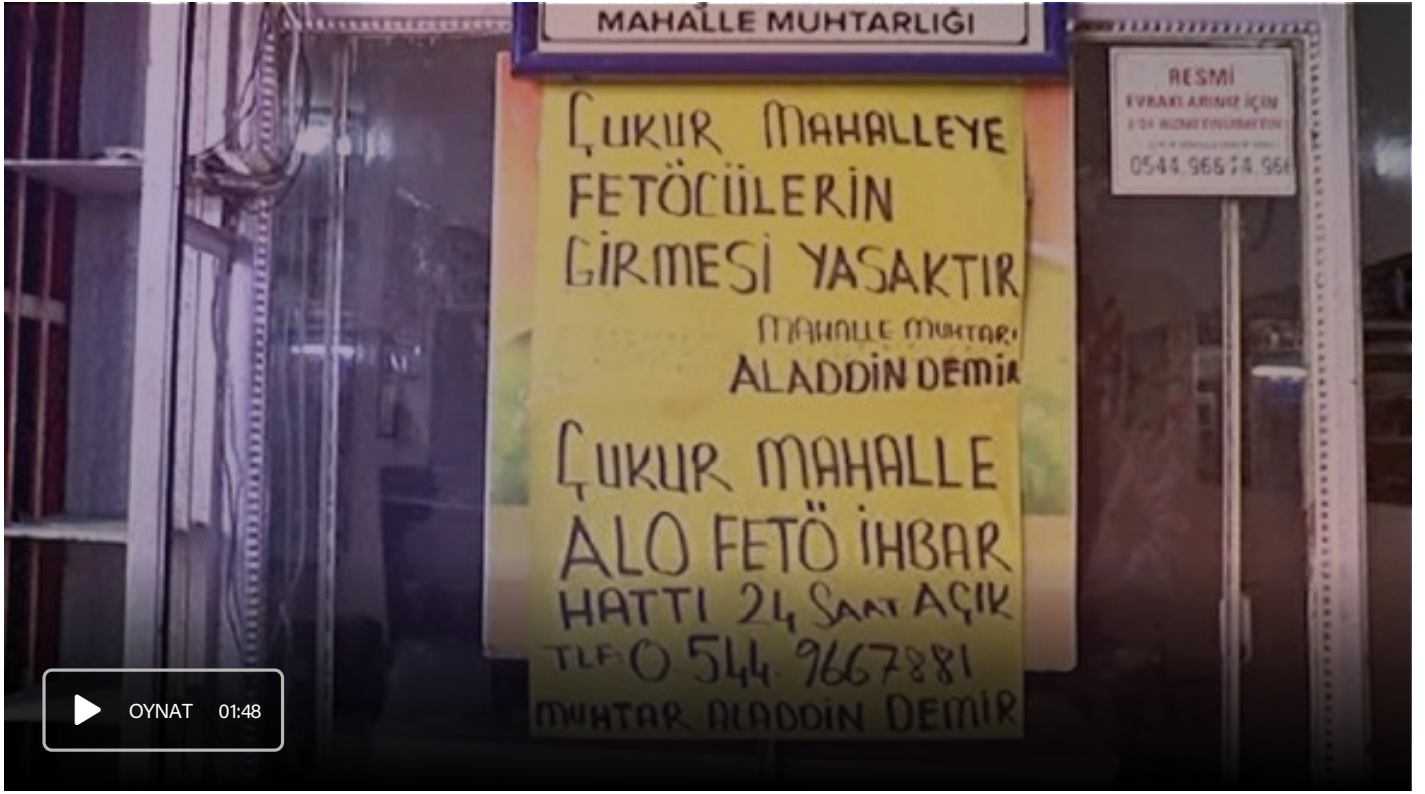 MAHALLE MUHTARLIĞI
ÇUKUR MAHALLEYE
FETÖCÜLERİN
GİRMESİ YASAKTIR
MAHALLE MUHTARI
ALADDİN DEMİR
ÇUKUR MAHALLE
ALO FETÖ İHBAR
HATTI 24 SAAT AÇIK
TLF: 0.544.9667881
MUHTAR ALADDİN DEMİR
RESMİ
EVRAKLARINIZ İÇİN
OYNAT 01:48